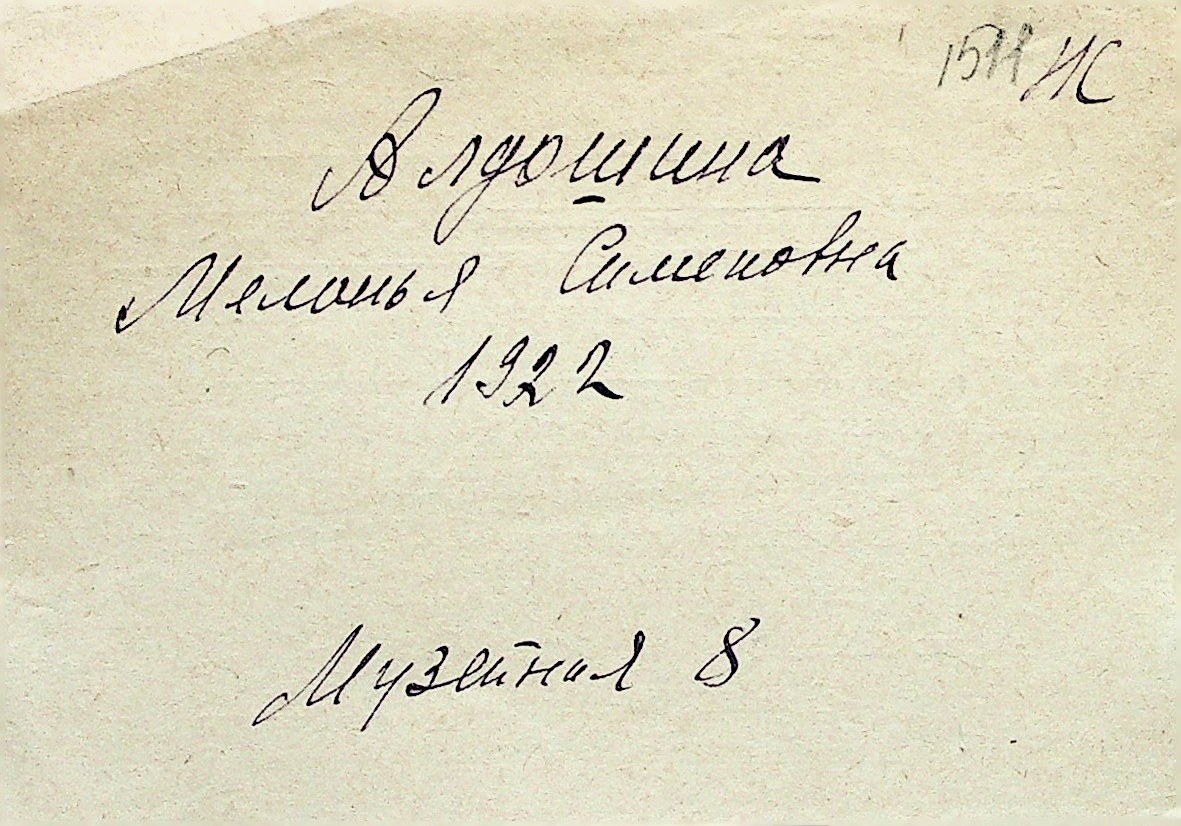 Ж
Алдошина
Меланья Сименовна
1922
Музейная 8